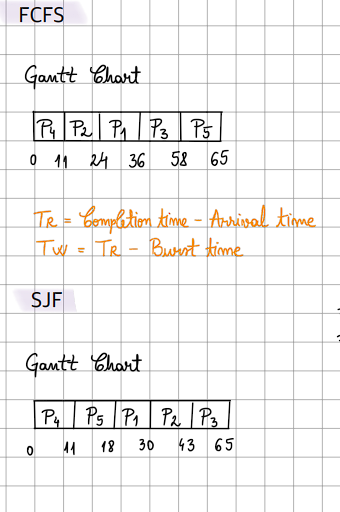 FCFS
Gantt Chart
P4 P2 P1 P3 P5
0 11 24 36 58 65
TR = Completion time - Arrival time
TW = TR - Burst time
SJF
Gantt Chart
P4 P5 P1 P2 P3
0 11 18 30 43 65